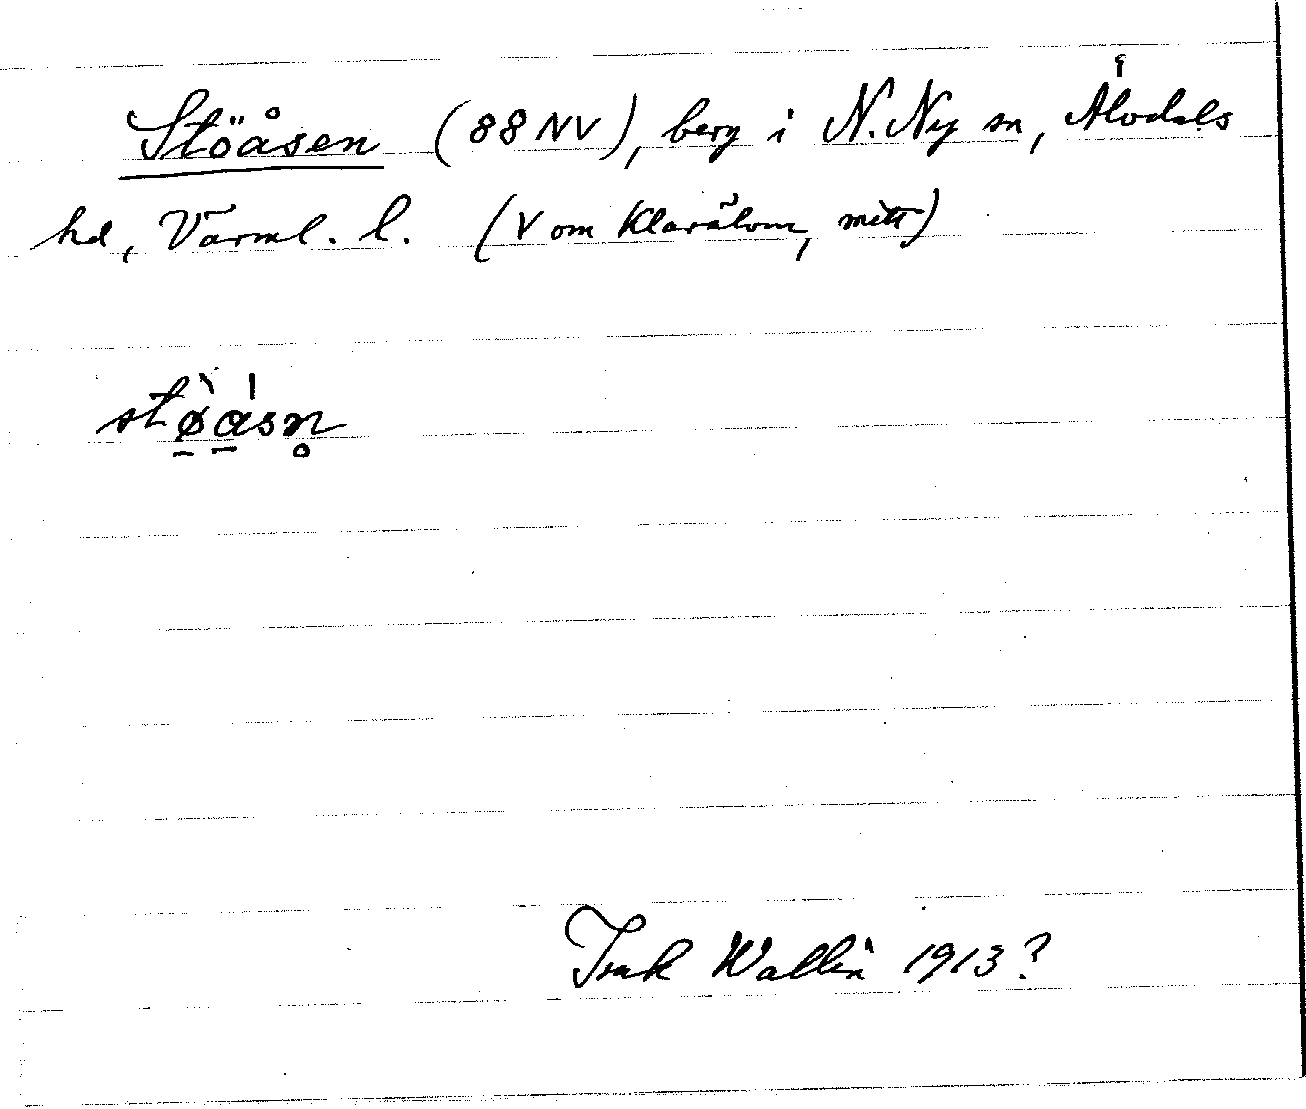 Stöåsen (88 NV), berg i N. Ny sn, Älvdals
hd, Värml. l. (V om Klarälven, mitt)
stø̠̀a̠̍sn̥
Isak Wallin 1913?